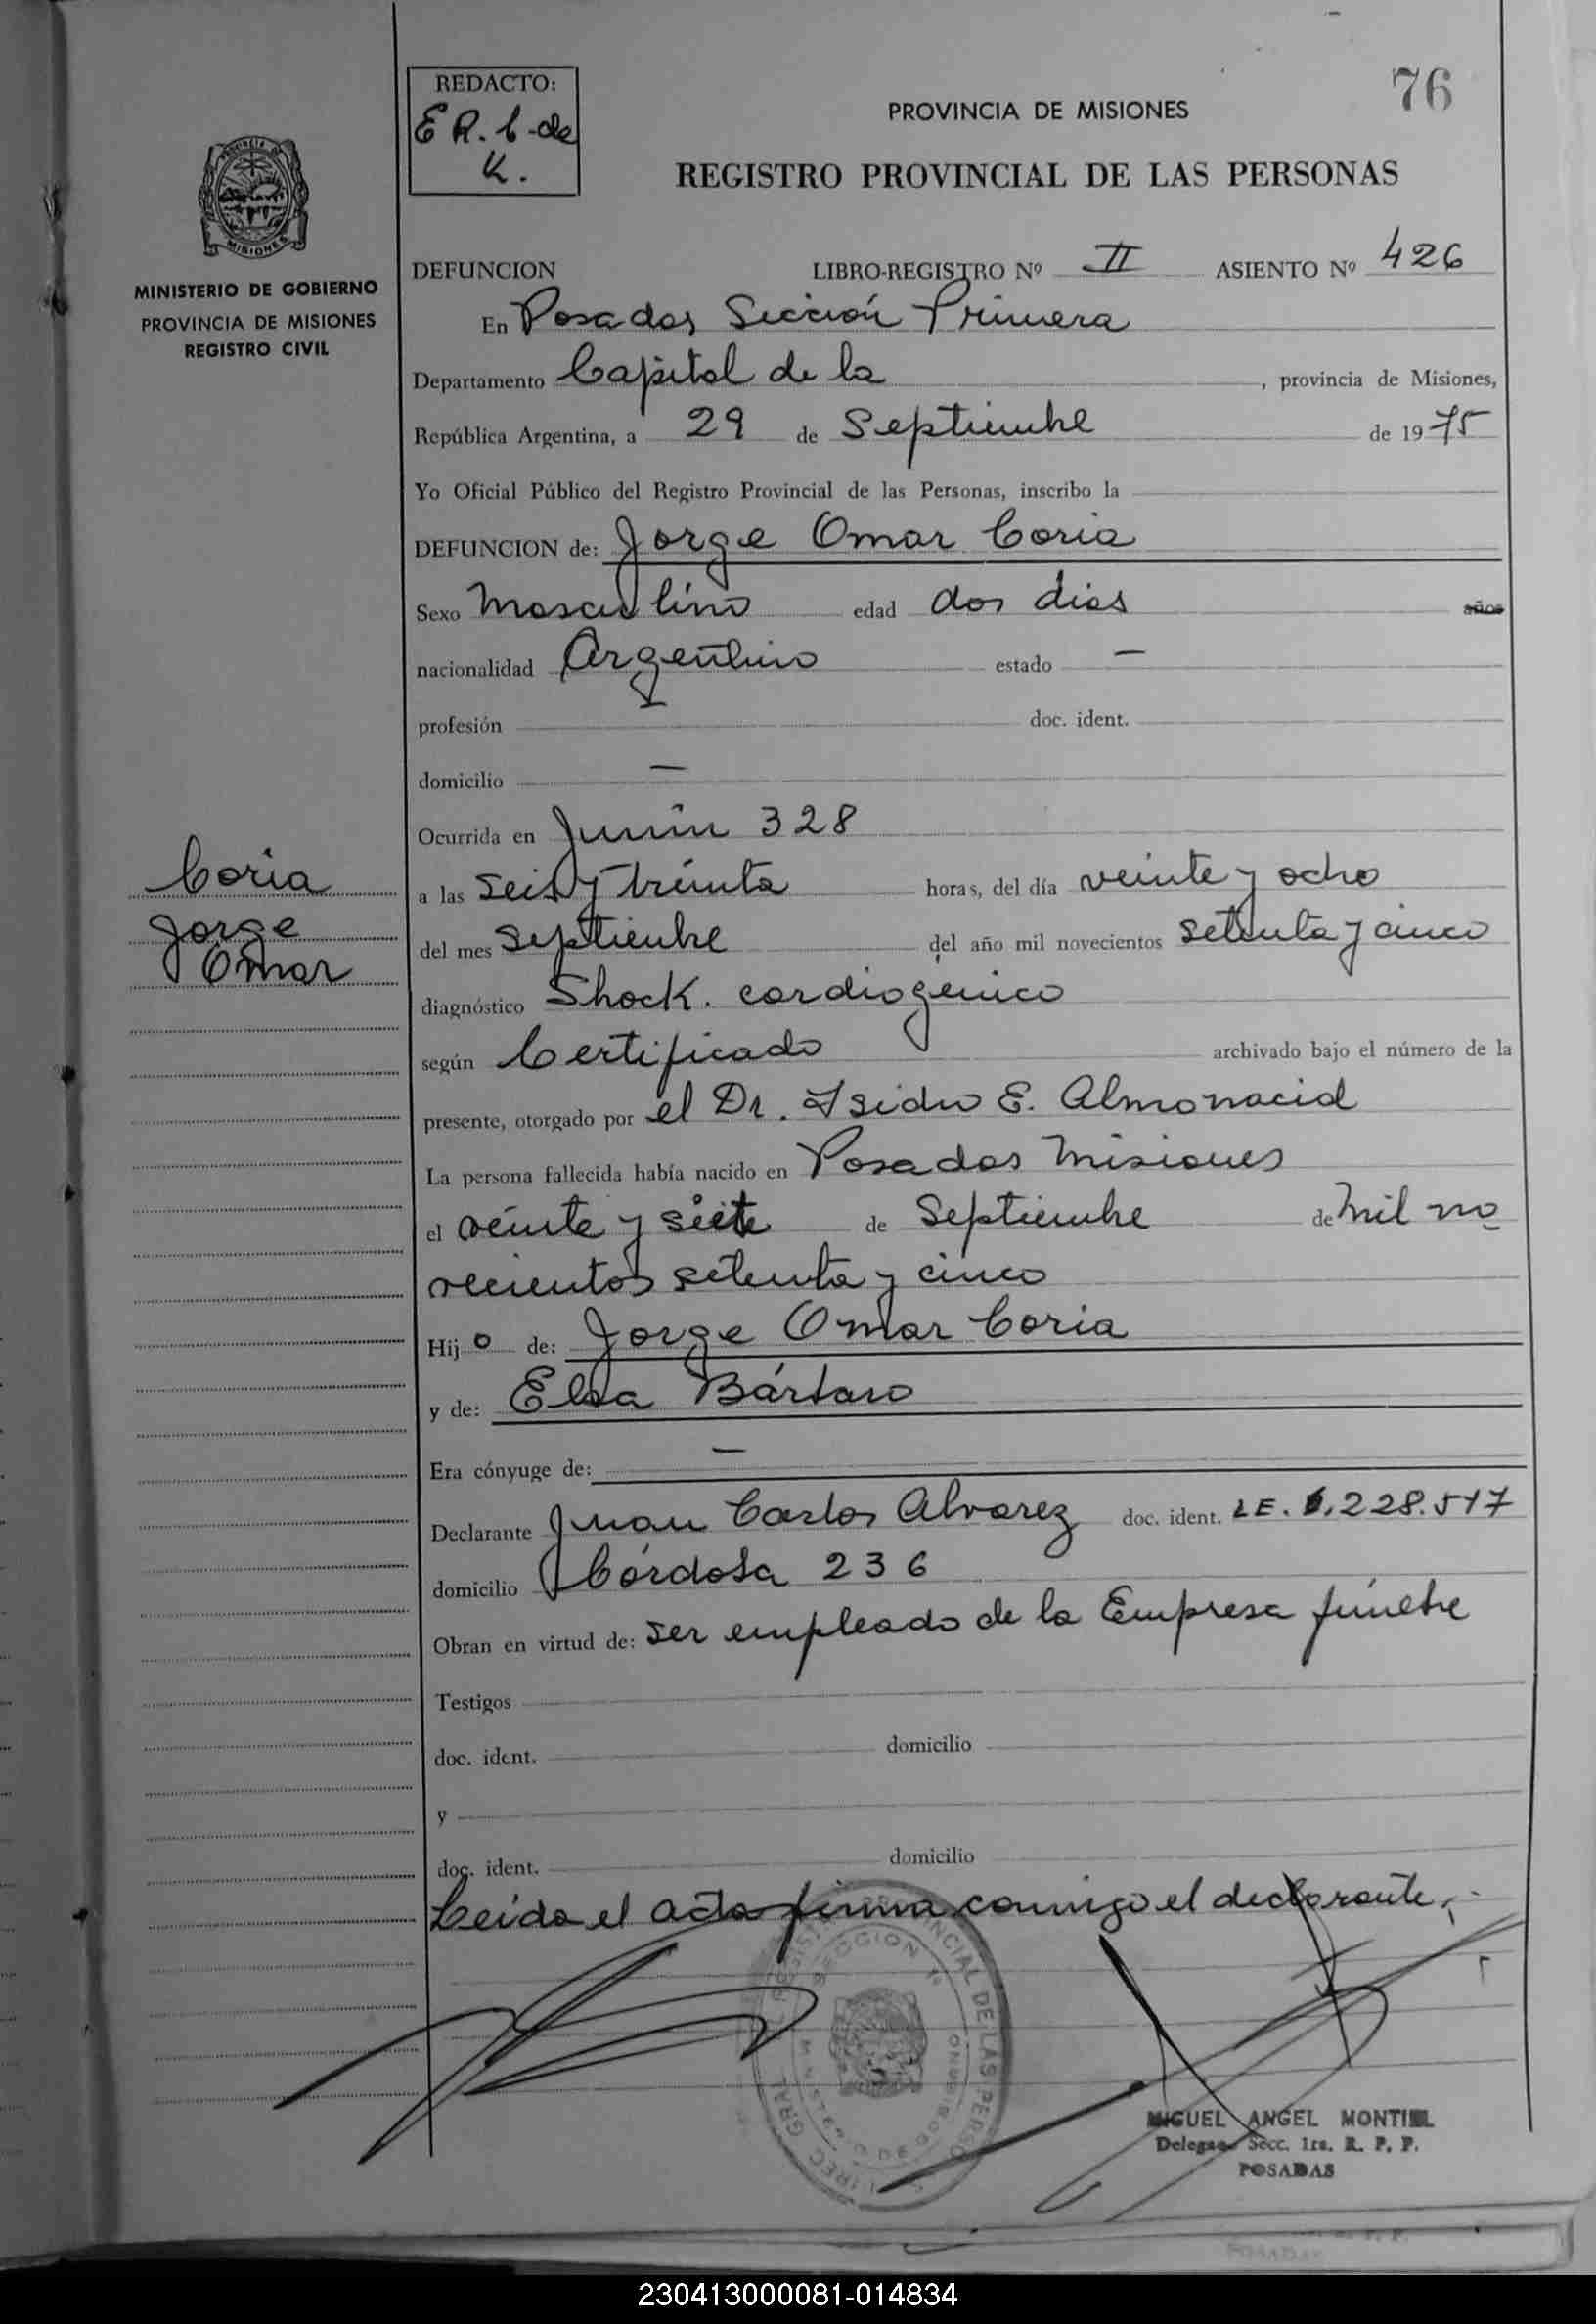 76
REDACTO:
E R. C. de
K.
PROVINCIA DE MISIONES
REGISTRO PROVINCIAL DE LAS PERSONAS
MISIONES
MINISTERIO DE GOBIERNO
PROVINCIA DE MISIONES
REGISTRO CIVIL
DEFUNCION LIBRO-REGISTRO Nº II ASIENTO Nº 426
En Posadas Sección Primera
Departamento Capital de la , provincia de Misiones,
República Argentina, a 29 de Septiembre de 1975
Yo Oficial Público del Registro Provincial de las Personas, inscribo la
DEFUNCION de: Jorge Omar Coria
Sexo Masculino edad dos dias años
nacionalidad Argentino estado —
profesión doc. ident.
domicilio —
Ocurrida en Junín 328
Coria
Jorge
Omar
a las seis y treinta horas, del día veinte y ocho
del mes Septiembre del año mil novecientos setenta y cinco
diagnóstico Shock. cardiogénico
según Certificado archivado bajo el número de la
presente, otorgado por el Dr. Isidro E. Almonacid
La persona fallecida había nacido en Posadas Misiones
el veinte y siete de Septiembre de mil no
vecientos setenta y cinco
Hijo de: Jorge Omar Coria
y de: Elsa Bárbaro
Era cónyuge de: —
Declarante Juan Carlos Alvarez doc. ident. LE. .228.517
domicilio Córdoba 236
Obran en virtud de: ser empleado de la Empresa fúnebre
Testigos
doc. ident. domicilio
y
doc. ident. domicilio
Leida el acta firma conmigo el declarante,
SECCION 1º
MIGUEL ANGEL MONTIEL
Delegado Secc. 1ra. R. P. P.
POSADAS
230413000081-014834